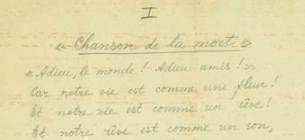 I
« Chanson de la mort »
« Adieu, le monde ! Adieu amis ! »
Car notre vie est comme une fleur !
Et notre vie est comme un rêve !
Et notre rêve est comme un son,